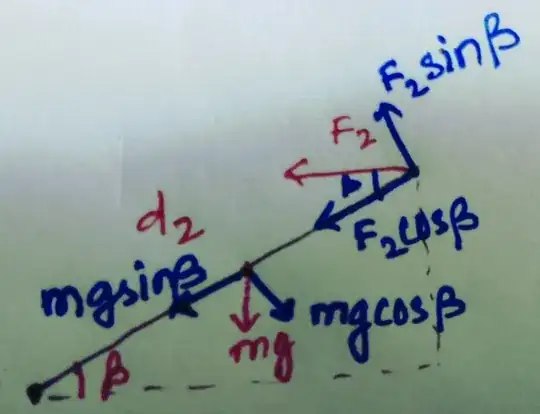 F₂sinβ
F₂
β
F₂cosβ
d₂
mgsinβ
mgcosβ
mg
β